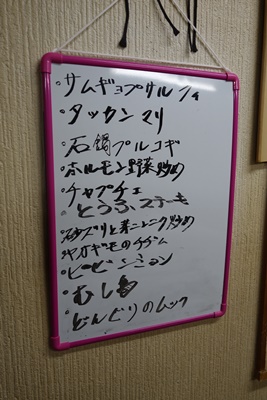 ・サムギョプサル
・タッカンマリ
・石鍋プルコギ
・ホルモン野菜炒め
・チャプチェ
・とうふステーキ
・砂ズリと芽ニンニク炒め
・ヤオギモのチヂム
・ビビン
・むし
・どんぐりのムック